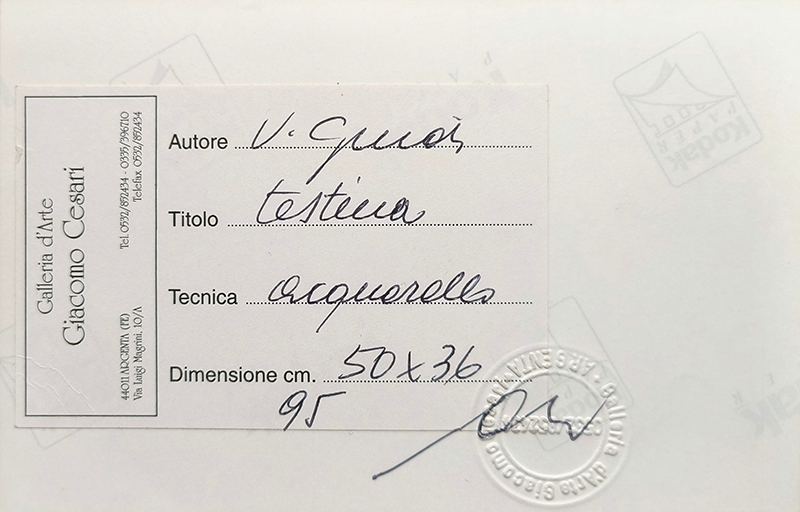 Galleria d'Arte
Giacomo Cesari
44011 ARGENTA (FE)
Via Luigi Magrini, 10/A
Tel. 0532/852434 - 0335/396710
Telefax 0532/852434
Autore V. Guidi
Titolo testina
Tecnica acquarello
Dimensione cm. 50x36
95
Galleria d'Arte Giacomo
ARGENTA
Kodak
PAPER